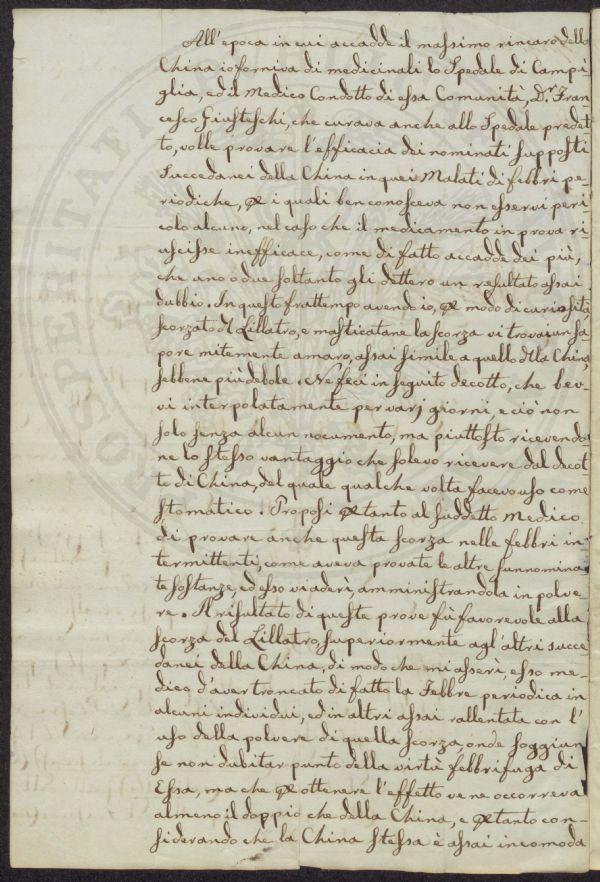 All'epoca in cui accadde il massimo rincaro della
China io forniva di medicinali lo Spedale di Campi-
glia, ed il Medico Condotto di essa Comunità, Dr. Fran-
cesco Giusteschi, che curava anche allo Spedale predet-
to, volle provare l'efficacia dei nominati supposti
Succedanei della China in quei Malati di febbri pe-
riodiche, per i quali ben conosceva non esservi peri-
colo alcuno, nel caso che il medicamento in prova ri-
uscisse inefficace, come di fatto accadde dei più,
che uno o due soltanto gli dettero un resultato assai
dubbio. In questo frattempo avendo io, per modo di curiosità
scorzato il Lillatro, e masticatane la scorza vi trovai un sa-
pore mitemente amaro, assai simile a quello della China,
sebbene più debole. Ne feci in seguito decotto, che bev-
vi interpolatamente per varj giorni, e ciò non
solo senza alcun nocumento, ma piuttosto ricevendo-
ne lo stesso vantaggio che solevo ricevere dal decot-
to di China, del quale qualche volta facevo uso come
stomatico. Proposi pertanto al suddetto Medico
di provare anche questa scorza nelle febbri in-
termittenti, come aveva provate le altre sunnomina-
te sostanze, ed esso vi aderì, amministrandola in polve-
re. Il risultato di queste prove fù favorevole alla
scorza del Lillatro, superiormente agl'altri succe-
danei della China, di modo che mi asserì, esso me-
dico d'aver troncato di fatto la Febbre periodica in
alcuni individui, ed in altri assai rallentata con l'
uso della polvere di quella scorza, onde soggiun-
se non dubitar punto della virtù febbrifuga di
Essa, ma che per ottenere l'effetto ve ne occorreva
almeno il doppio che della China, e pertanto con-
siderando che la China stessa è assai incomoda
PROSPERITATI